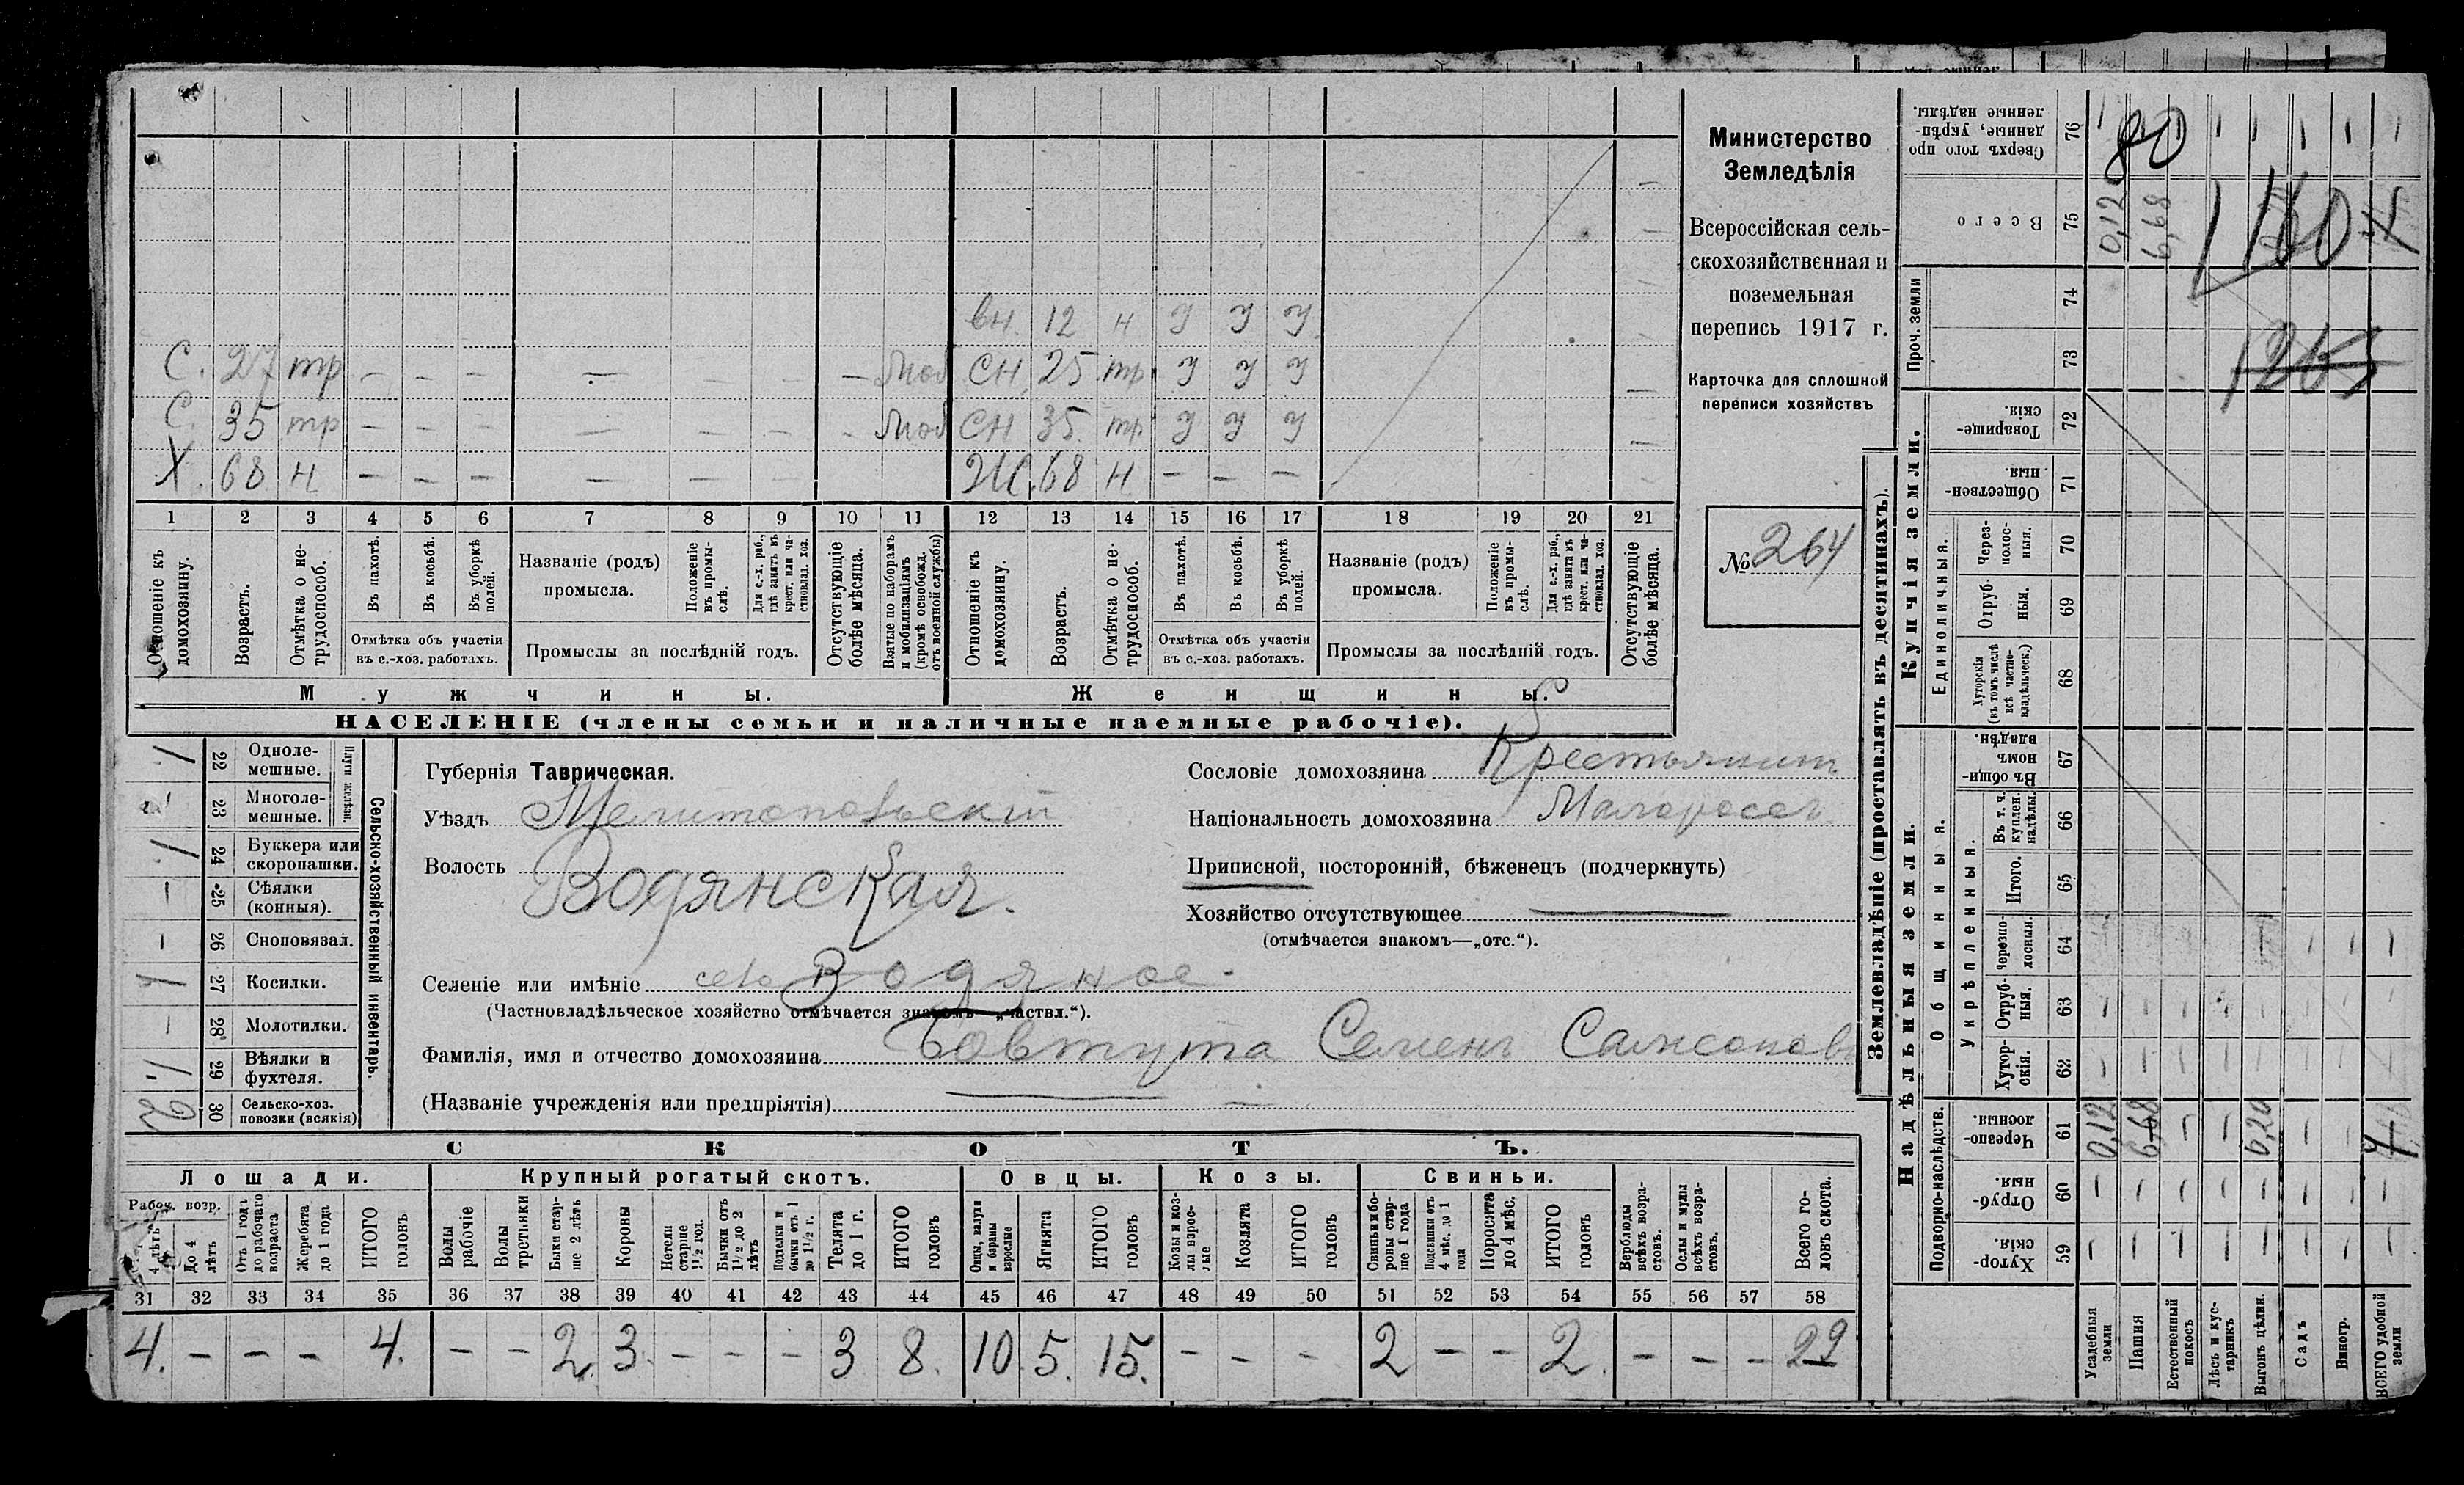 вн. 12 н У У У
С. 27 тр — — — — — — — Моб СН 25 тр У У У —
С. 35 тр — — — — — — - Моб СН 35 тр У У У —
Х. 68 н — — — — — — Ж. 68 н — — —
1 2 3 4 5 6 7 8 9 10 11 12 13 14 15 16 17 18 19 20 21
Отношеніе къ домохозяину.
Возрастъ.
Отмѣтка о не-трудоспособ.
Въ пахотѣ.
Въ косьбѣ.
Въ уборкѣ полей.
Отмѣтка объ участіи
въ с.-хоз. работахъ.
Названіе (родъ)
промысла.
Положеніе въ промы-слѣ.
Для с.-х. раб., гдѣ занятъ въ крест. или ча-стновлад. хоз.
Промыслы за послѣдній годъ.
Отсутствующіе болѣе мѣсяца.
Взятые по наборамъ и мобилизаціямъ (кромѣ освобожд. отъ военной службы)
Отношеніе къ домохозяину.
Возрастъ.
Отмѣтка о не-трудоспособ.
Въ пахотѣ.
Въ косьбѣ.
Въ уборкѣ полей.
Отмѣтка объ участіи
въ с.-хоз. работахъ.
Названіе (родъ)
промысла.
Положеніе въ промы-слѣ.
Для с.-х. раб., гдѣ занята въ крест. или ча-стновлад. хоз.
Промыслы за послѣдній годъ.
Отсутствующіе болѣе мѣсяца.
Мужчины. Женщины.
НАСЕЛЕНІЕ (члены семьи и наличные наемные рабочіе).
Министерство
Земледѣлія
Всероссійская сель-
скохозяйственная и
поземельная
перепись 1917 г.
Карточка для сплошной
переписи хозяйствъ
№ 264
Сельско-хозяйственный инвентарь.
Плуги желѣзн.
1. 22 Одноле-мешные.
23 Многоле-мешные.
1. 24 Буккера или скоропашки.
— 25 Сѣялки (конныя).
— 26 Сноповязал.
1 27 Косилки.
— 28 Молотилки.
1. 29 Вѣялки и фухтеля.
2 30 Сельско-хоз. повозки (всякія)
Губернія Таврическая.
Уѣздъ Мелитопольскій
Волость Водянская.
Селеніе или имѣніе село Водяное
(Частновладѣльческое хозяйство отмѣчается знакомъ „частвл.“).
Фамилія, имя и отчество домохозяина Бовтута Семенъ Самсонов
(Названіе учрежденія или предпріятія)
Сословіе домохозяина Крестьянин
Національность домохозяина Малоросс
Приписной, посторонній, бѣженецъ (подчеркнуть)
Хозяйство отсутствующее —
(отмѣчается знакомъ—„отс.“).
СКОТЪ.
Лошади. Крупный рогатый скотъ. Овцы. Козы. Свиньи.
Рабоч. возр.
4 лѣтъ
До 4 лѣтъ
Отъ 1 годъ до рабочаго возраста
Жеребята до 1 года
ИТОГО головъ
Волы рабочіе
Волы третьяки
Быки стар-ше 2 лѣтъ
Коровы
Нетели старше 1½ год.
Бычки отъ 1½ до 2 лѣтъ
Подтелки и бычки отъ 1 до 1½ г.
Телята до 1 г.
ИТОГО головъ
Овцы, валухи и бараны взрослые
Ягнята
ИТОГО головъ
Козы и коз-лы взрос-лые
Козлята
ИТОГО головъ
Свиньи и бо-ровы стар-ше 1 года
Подсвинки отъ 4 мѣс. до 1 года
Поросята до 4 мѣс.
ИТОГО головъ
Верблюды всѣхъ возра-стовъ.
Ослы и мулы всѣхъ возра-стовъ.
Всего го-ловъ скота.
31 32 33 34 35 36 37 38 39 40 41 42 43 44 45 46 47 48 49 50 51 52 53 54 55 56 57 58
4. — — — 4. — — 2 3. — — — 3 8. 10 5. 15. — — — 2 — — 2. — — — 29
Землевладѣніе (проставлять въ десятинахъ).
Купчія земли.
Надѣльныя земли.
Проч. земли
Единоличныя.
Общинныя.
Укрѣпленныя.
Подворно-наслѣдств.
Сверхъ того про данные, укрѣп-ленные надѣлы. 76
80
Всего 75 0,12 6,68
1160
74
73
1265
Товарище-скія. 72
Обществен-ныя. 71
Через-полос-ныя. 70
Отруб-ныя. 69
Хуторскія (въ томъ числѣ всѣ частно-владѣльческ.) 68
Въ общи-номъ владѣн. 67
Въ т. ч. куплен. надѣлы. 66
Итого. 65
Черезпо-лосныя. 64
Отруб-ныя. 63
Хутор-скія. 62
Черезпо-лосныя. 61 0,12 6,68 — — 0,20 — —
Отруб-ныя. 60
Хутор-скія. 59
Усадебныя земли
Пашня
Естественный покосъ
Лѣсъ и кус-тарникъ
Выгонъ цѣлин.
Садъ
Виногр.
ВСЕГО удобной земли